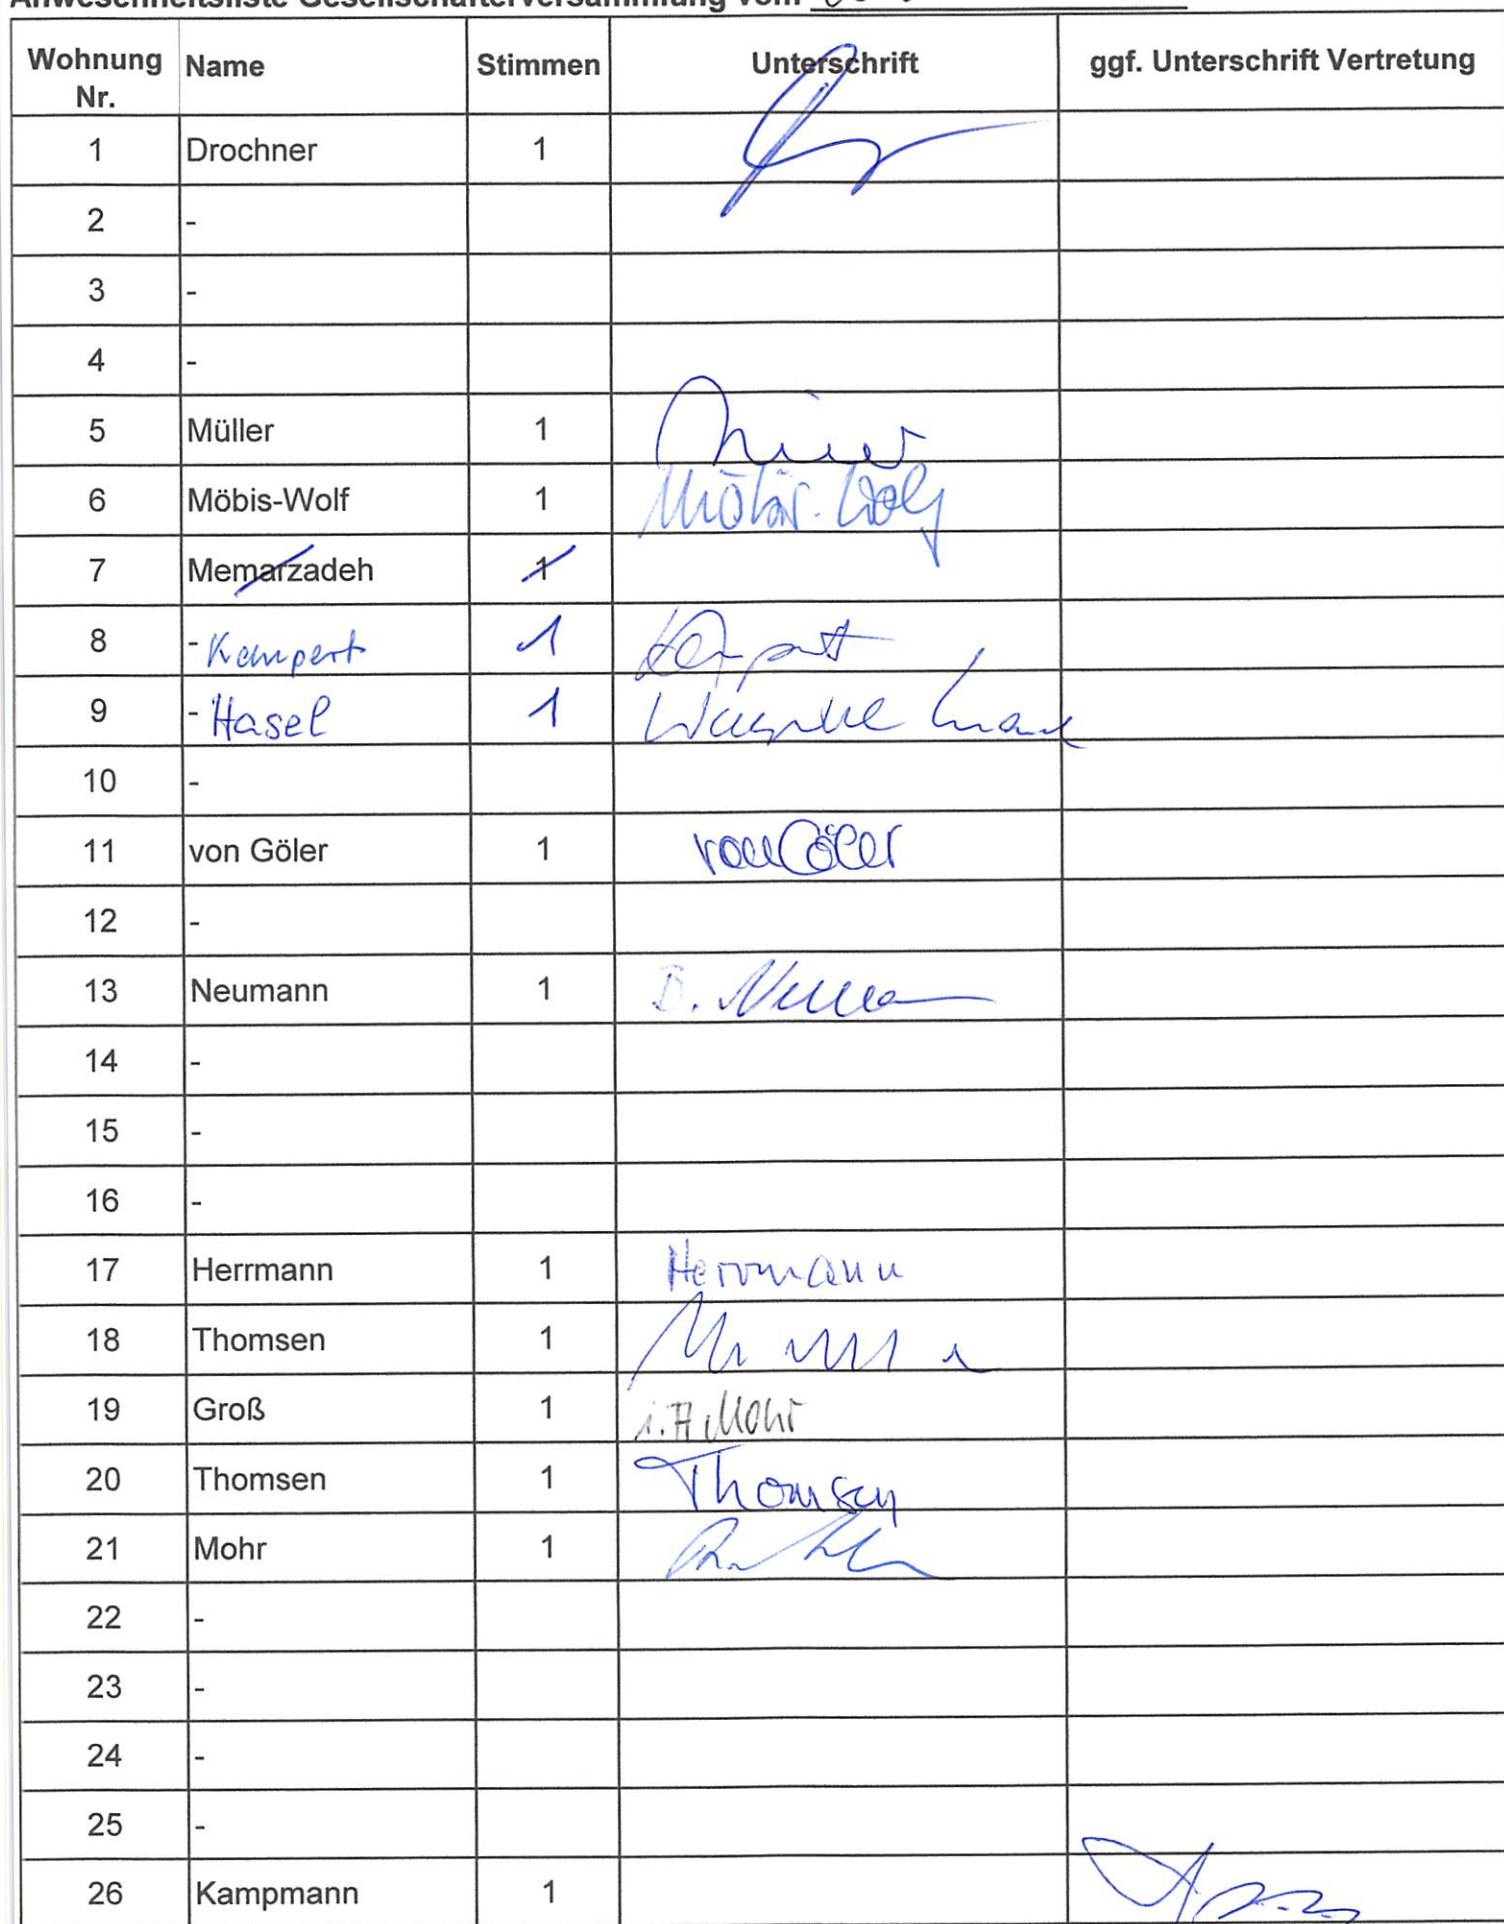 Anwesenheitsliste Gesellschafterversammlung vom
Wohnung Nr. Name Stimmen Unterschrift ggf. Unterschrift Vertretung
1 Drochner 1
2 -
3 -
4 -
5 Müller 1
6 Möbis-Wolf 1 Möbis-Wolf
7 Memarzadeh 1
8 - Kempert 1
9 - Hasel 1
10 -
11 von Göler 1 von Göler
12 -
13 Neumann 1 B. Neumann
14 -
15 -
16 -
17 Herrmann 1 Herrmann
18 Thomsen 1
19 Groß 1 i.A. Mohr
20 Thomsen 1 Thomsen
21 Mohr 1
22 -
23 -
24 -
25 -
26 Kampmann 1